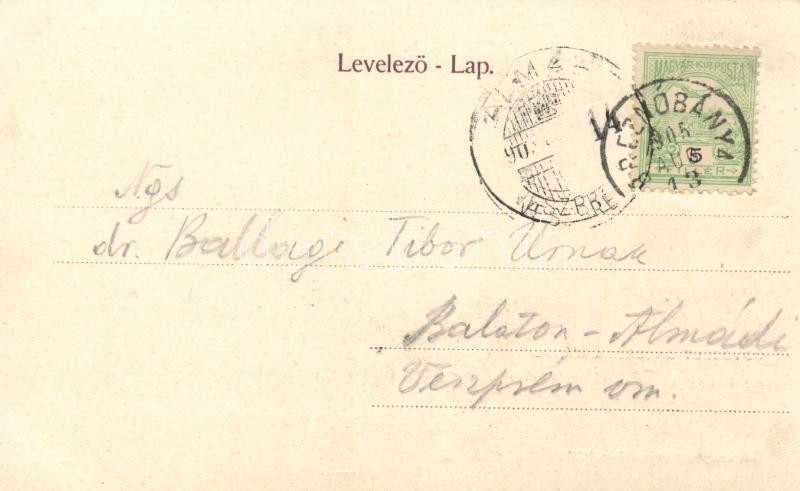 Levelező - Lap.
MAGYAR KIR. POSTA
BRESNÓBÁNYA
905
AUG
13
5
14
ALMÁ
905
VESZPRÉ
Ngs
dr. Ballagi Tibor Urnak
Balaton - Almádi
Veszprém vm.